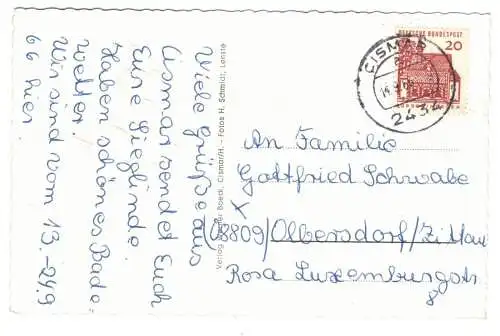 Viele Grüße aus
Cismar sendet Euch
Eure Sieglinde.
Haben schönes Bade-
wetter.
Wir sind vom 13.-24.9
66 hier.
Verlag Werner Boeck, Cismar/H. - Fotos H. Schmidt, Lenste
DEUTSCHE BUNDESPOST
20
CISMAR
2434
An Familie
Gottfried Schwabe
x
8809/Olbersdorf/Zittau
Rosa Luxemburgstr
8